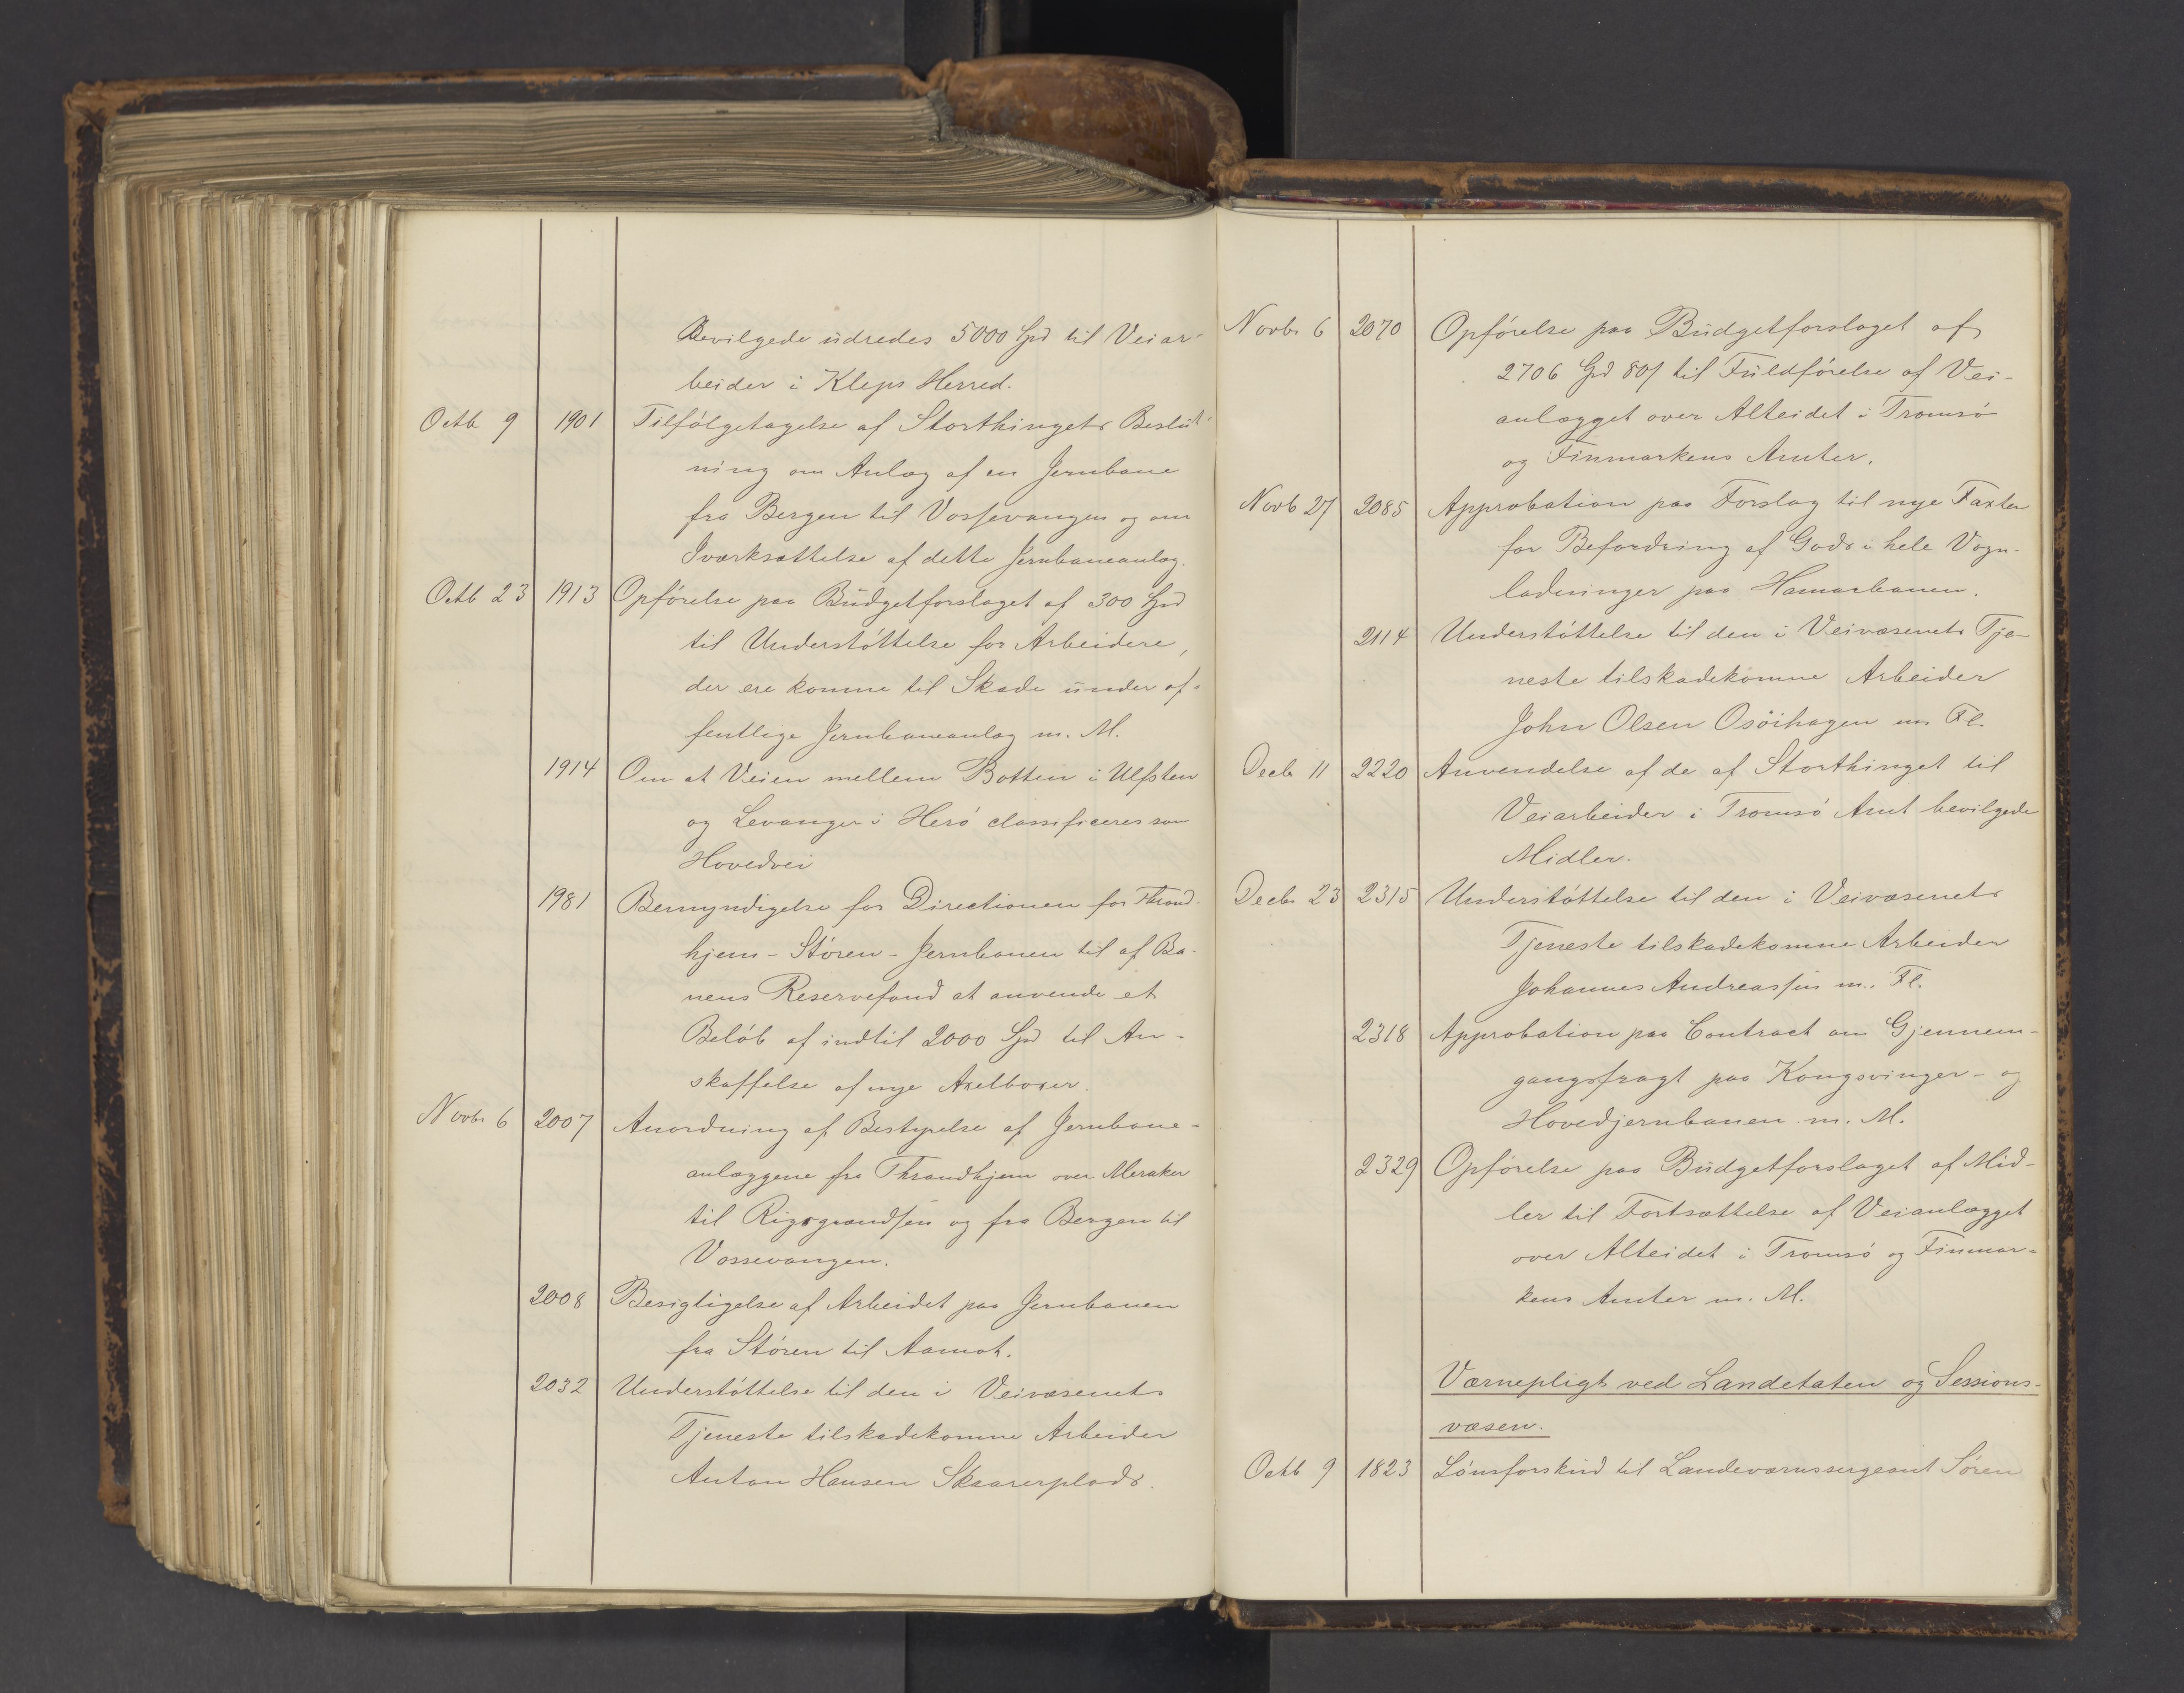 Bevilgede udredes 5000 Spd til Veiar-
beider i Kleps Herred.
Octb 9 1901 Tilfølgetagelse af Storthingets Beslut-
ning om Anlæg af en Jernbane
fra Bergen til Vossevangen og om
Iværksættelse af dette Jernbaneanlæg.
Octb 23 1913 Opførelse paa Budgetforslaget af 300 Spd
til Understøttelse for Arbeidere,
der ere komne til Skade under of-
fentlige Jernbaneanlæg m. M.
1914 Om at Veien mellem Botten i Ulfsten
og Levanger i Herø classificeres som
Hovedvei
1981 Bemyndigelse for Directionen for Thrond-
hjem-Støren-Jernbanen til af Ba-
nens Reservefond at anvende et
Beløb af indtil 2000 Spd til An-
skaffelse af nye Axelboxer.
Novbr 6 2007 Anordning af Bestyrelse af Jernbane-
anlæggene fra Throndhjem over Meraker
til Rigsgrændsen og fra Bergen til
Vossevangen.
2008 Besigtigelse af Arbeidet paa Jernbanen
fra Støren til Aamot.
2032 Understøttelse til den i Veivæsenets
Tjeneste tilskadekomne Arbeider
Anton Hansen Skaarerplads.
Novbr 6 2070 Opførelse paa Budgetforslaget af
2706 Spd 80 s til Fuldførelse af Vei-
anlægget over Alteidet i Tromsø
og Finmarkens Amter.
Novb 27 2085 Approbation paa Forslag til nye Taxter
for Befordring af Gods i hele Vogn-
ladninger paa Hamarbanen.
2114 Understøttelse til den i Veivæsenets Tje-
neste tilskadekomne Arbeider
John Olsen Osöihagen m Fl.
Decbr 11 2220 Anvendelse af de af Storthinget til
Veiarbeider i Tromsø Amt bevilgede
Midler.
Decbr 23 2315 Understøttelse til den i Veivæsenets
Tjeneste tilskadekomne Arbeider
Johannes Andreassen m. Fl.
2318 Approbation paa Contract om Gjennem-
gangsfragt paa Kongsvinger- og
Hovedjernbanen m. M.
2329 Opførelse paa Budgetforslaget af Mid-
ler til Fortsættelse af Veianlægget
over Alteidet i Tromsø og Finmar-
kens Amter m. M.
Værnepligt ved Landetaten og Sessions-
væsen.
Octb 9 1823 Lønsforskud til Landeværnssergeant Søren